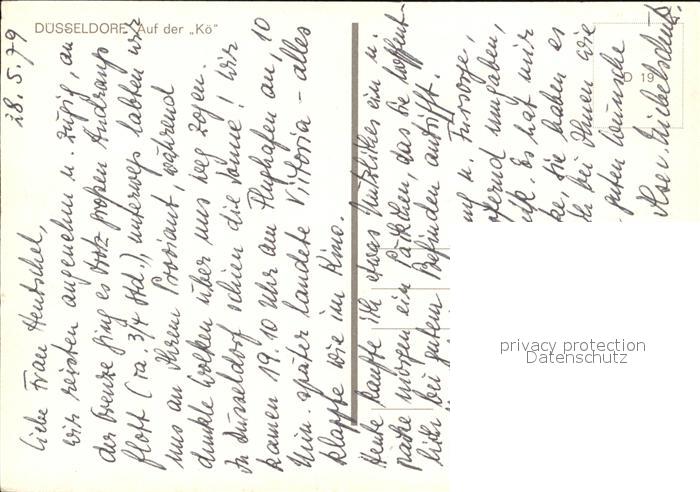 DÜSSELDORF Auf der „Kö"
28.5.79
Liebe Frau Hentschel,
wir reisten angenehm u. zügig, an
der Grenze ging es trotz großen Andrangs
flott (ca. 3/4 Std.), unterwegs labten wir
uns an Ihrem Proviant, während
dunkle Wolken über uns weg zogen.
In Düsseldorf schien die Sonne! Wir
kamen 19.10 Uhr am Flughafen an, 10
Min. später landete Viktoria - alles
klappte wie im Kino.
Heute kaufte ich etwas Nützliches ein u.
packe morgen ein Päckchen, das Sie hoffent-
lich bei gutem Befinden antrifft.
u. Fürsorge,
umgeben,
Es hat mir
Sie haben es
bei Ihnen wie
guten Wünsche
D 19
privacy protection
Datenschutz